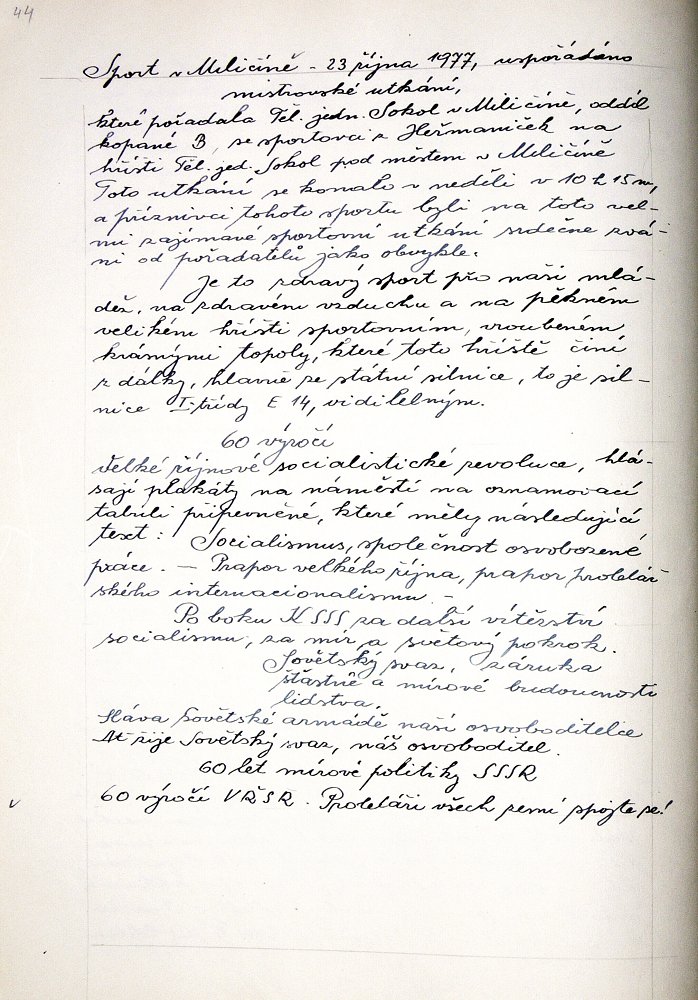 44
Sport v Miličíně - 23 října 1977, uspořádáno
mistrovské utkání,
které pořádala Těl. jedn. Sokol v Miličíně, oddíl
kopané B, se sportovci z Heřmaniček na
hřišti Těl. jed. Sokol pod městem v Miličíně
Toto utkání se konalo v neděli v 10 h 15 m,
a příznivci tohoto sportu byli na toto vel-
mi zajímavé sportovní utkání srdečně zvá-
ni od pořadatelů jako obvykle.
Je to zdravý sport pro naši mlá-
dež, na zdravém vzduchu a na pěkném
velikém hřišti sportovním, vroubeném
krásnými topoly, které toto hřiště činí
z dálky, hlavně ze státní silnice, to je sil-
nice I. třídy E 14, viditelným.
60 výročí
Velké říjnové socialistické revoluce, hlá-
sají plakáty na náměstí na oznamovací
tabuli připevněné, které měly následující
text: Socialismus, společnost osvobozené
práce. - Prapor velkého října, prapor proletář
ského internacionalismu -
Po boku KSSS za další vítězství
socialismu, za mír a světový pokrok.
Sovětský svaz, záruka
šťastné a mírové budoucnosti
lidstva.
Sláva Sovětské armádě naší osvoboditelce
Ať žije Sovětský svaz, náš osvoboditel.
60 let mírové politiky SSSR
v 60 výročí VŘSR. Proletáři všech zemí spojte se!